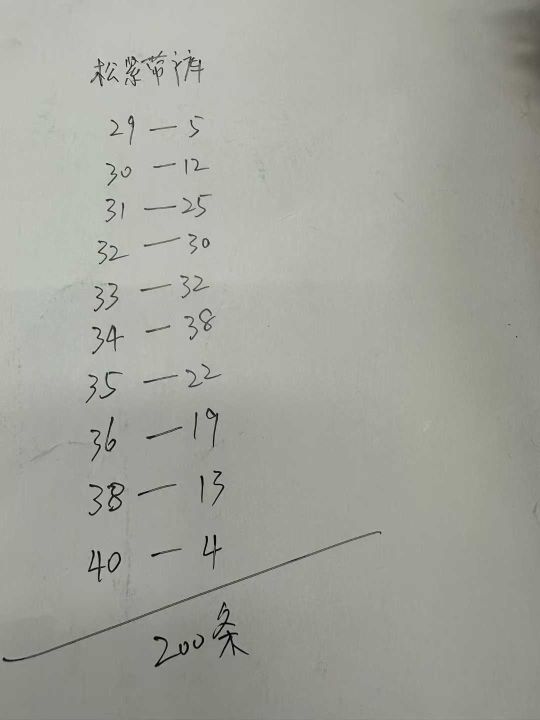 松紧带裤
29 — 5
30 — 12
31 — 25
32 — 30
33 — 32
34 — 38
35 — 22
36 — 19
38 — 13
40 — 4
200条